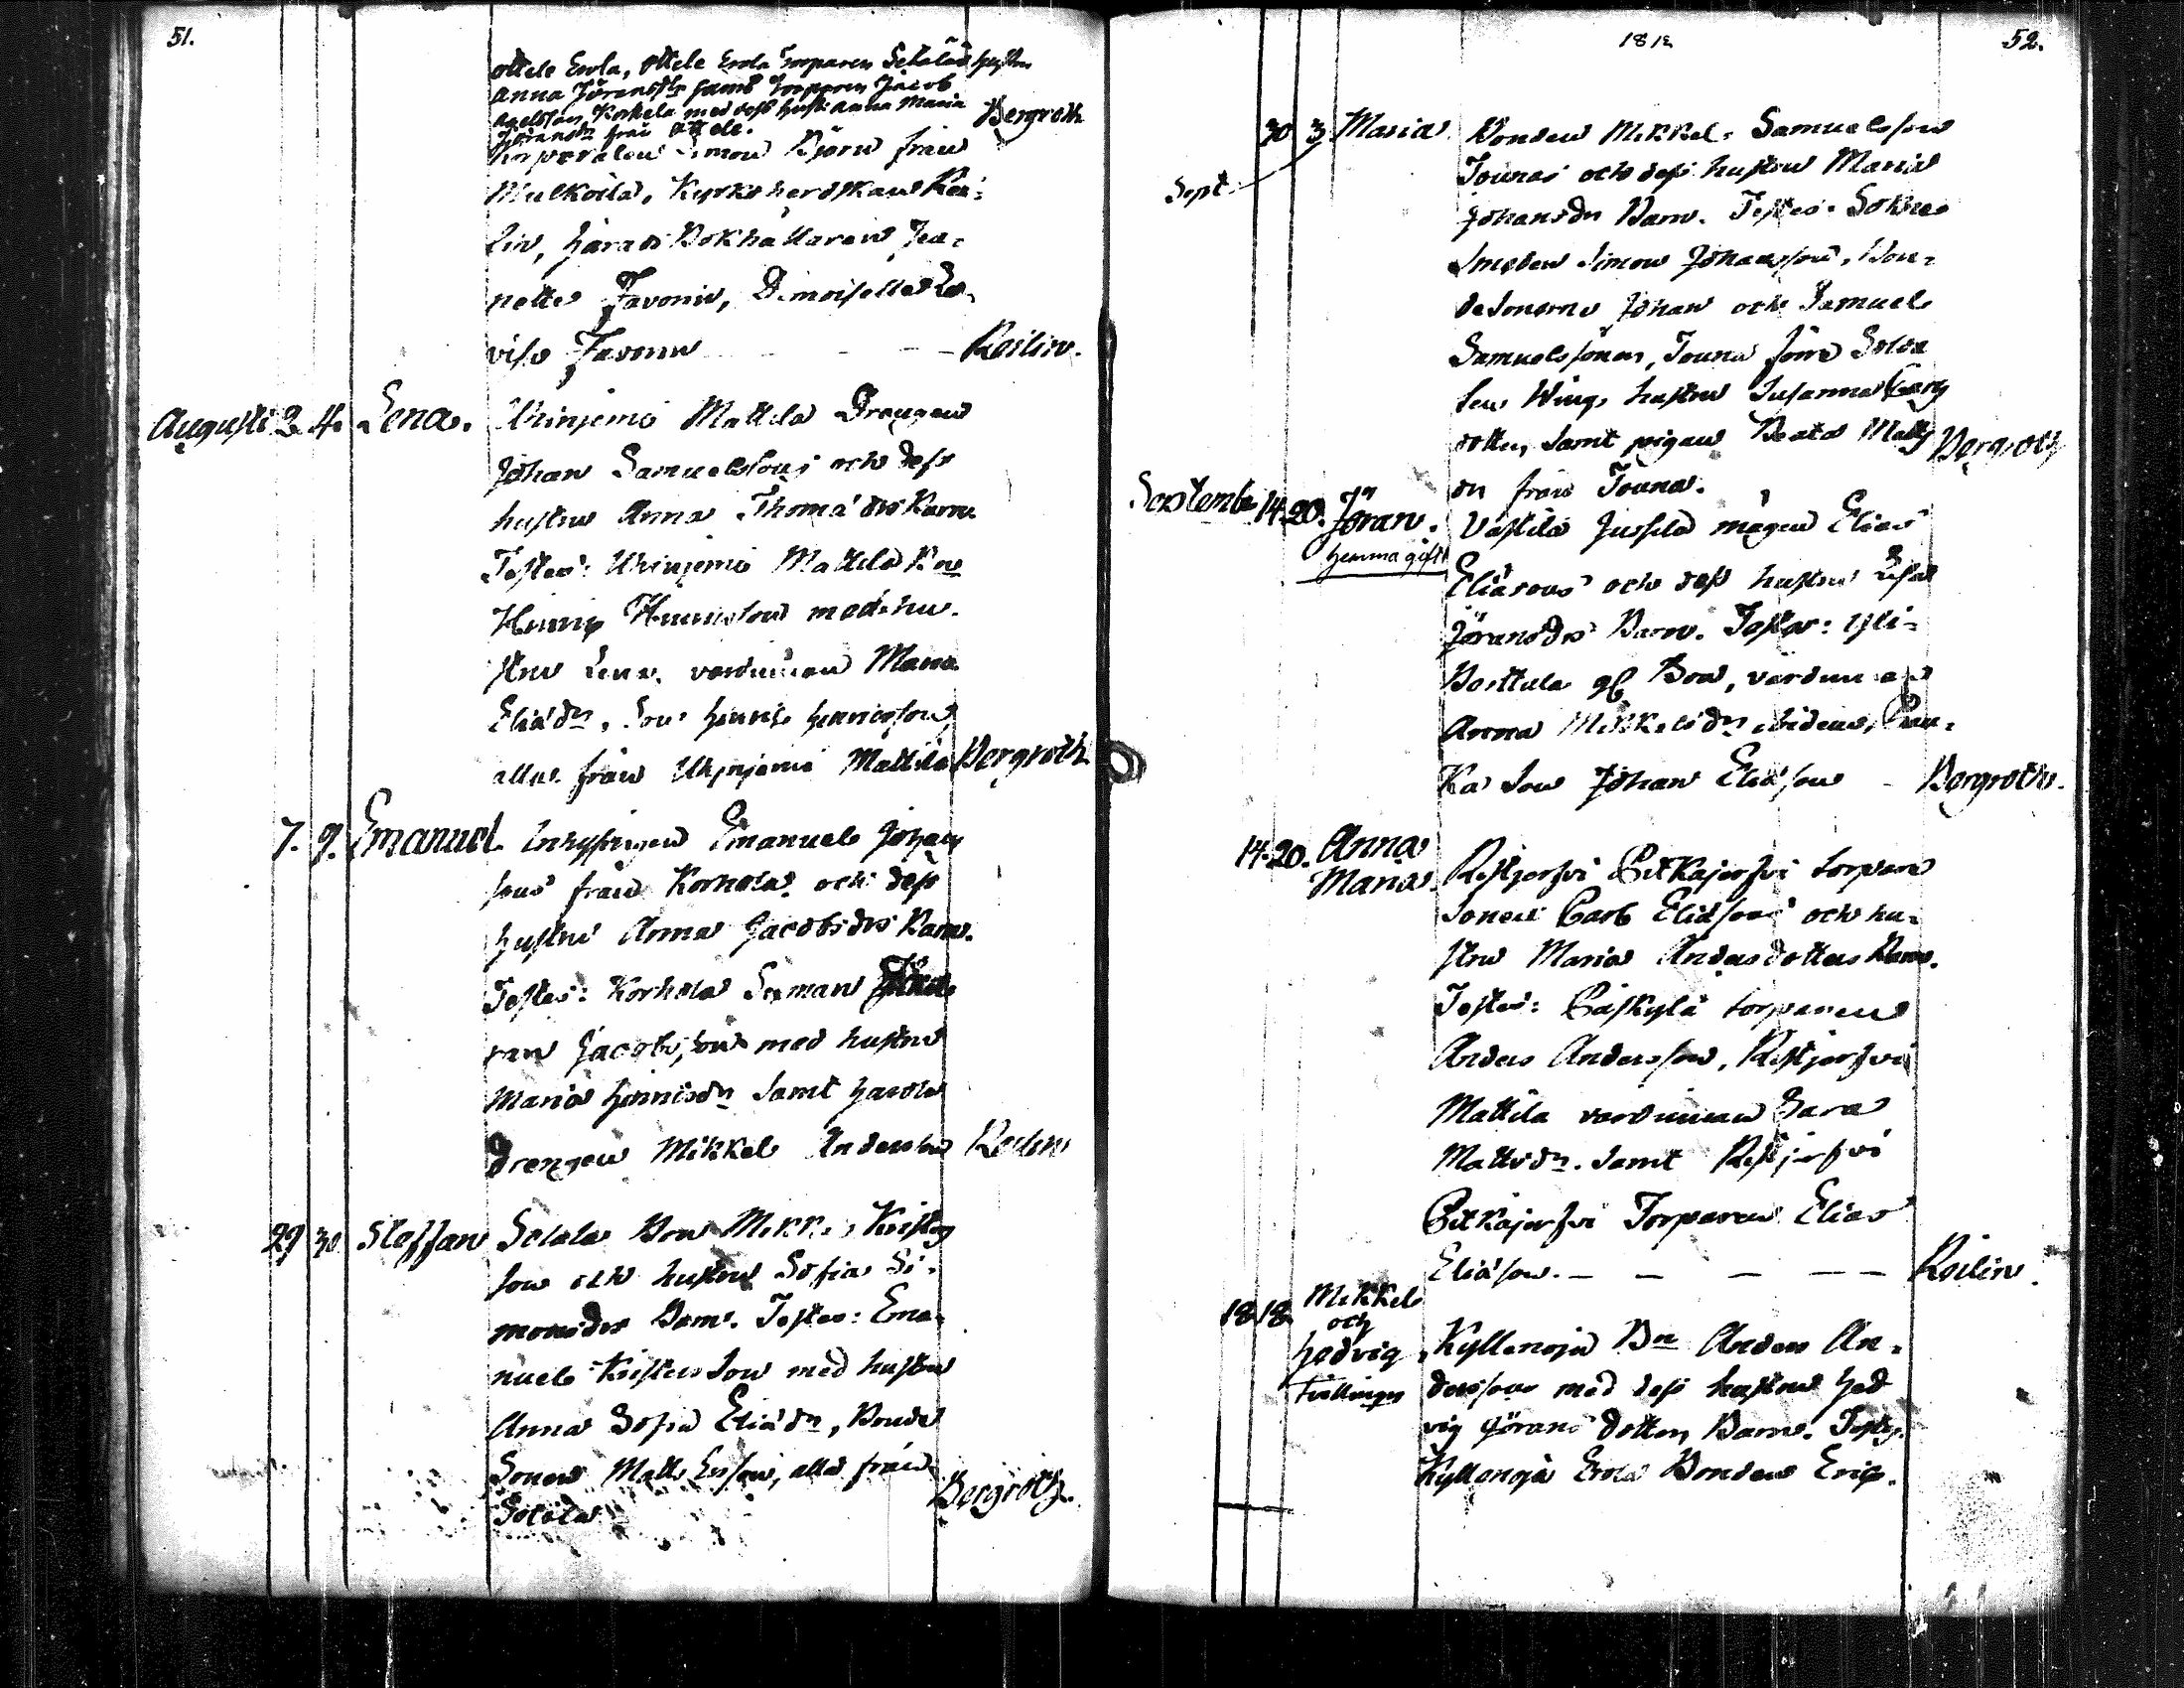 51.
ottele Erola, ottele Erola Torparen hustru
Anna Göransdr samt Torparen Jacob
Axelsson Korkela med dess hust. Anna Maria
Göransdr från ottele. Bergroth
Korporalen Simon Björn från
Mulkoila, Kyrkoherdskan Roi-
lin, härads Bokhållaren Jea-
nette Favorin, Demoiselle Lo-
visa Favorin - - - Roilin.
Augusti 2. 4. Lena. Uhinjemi Mattila Drengen
Johan Samuelssons och dess
hustru Anna Thomædrs Barn
Testes: Uhinjemi Mattila Bon
Henric Henricsson med hu-
stru Lena, värdinnan Maria
Eliædr, Son Henric Henricsson
alla från Uhinjemi Mattila Bergroth
7. 9. Emanuel. Inhysingen Emanuel Johans
sons från Korhola och dess
hustru Anna Jacobsdrs Barn.
Testes: Korhola Sexman Jö
ran Jacobsson med hustru
Maria Henricsdr samt Harola
Drengen Mikkel Andersson Roilin
29 30 Steffan Solala Bon Mikkel Kristers
son och hustru Sofia Si-
monsdrs Barn. Testes: Ema-
nuel Kristersson med hustru
Anna Sofia Eliædr, Bonde
Sonen Matts Ersson, alla från
Solala Bergroth.
1812
52.
Sept. 30 3 Maria Bonden Mikkel Samuelsson
Jounas och dess hustru Maria
Johansdrs Barn. Testes: Sokne
Smeden Simon Johansson, Bon-
desonerne Johan och Samuel
Samuelssöner, Jouna förre Solda
ten Wings hustru Susanna Carls
dotter, samt pigan Beata Matts
dr från Jouna. Bergroth
September 14. 20. Jöran. Vastila Jussila mågen Elias
hemma gift
Eliæsons och dess hustru Lisa
Göransdrs Barn. Testes: Yli-
Perttula gl. Bon, värdinnan
Anna Mikkelsdr ibidem,
ka Son Johan Eliæson - Bergroth.
14. 20. Anna
Maria. Ristjerfvi Pitkäjerfvi torpare
Sonen Carl Eliæsons och hu-
stru Maria Andersdotters Barn.
Testes: Päskylä torparen
Anders Andersson, Ristjerfvi
Mattila värdinnan Sara
Mattsdr. samt Ristjerfvi
Pitkäjerfvi Torparen Elias
Eliæson. - - - - - Roilin.
18 18. Mikkel
och
Hedvig
tvillingar
Kyllönoja Bn Anders An-
dersson med dess hustru Hed
vig Görans dotters Barn. Testes
Kyllönoja Erola Bonden Eric.